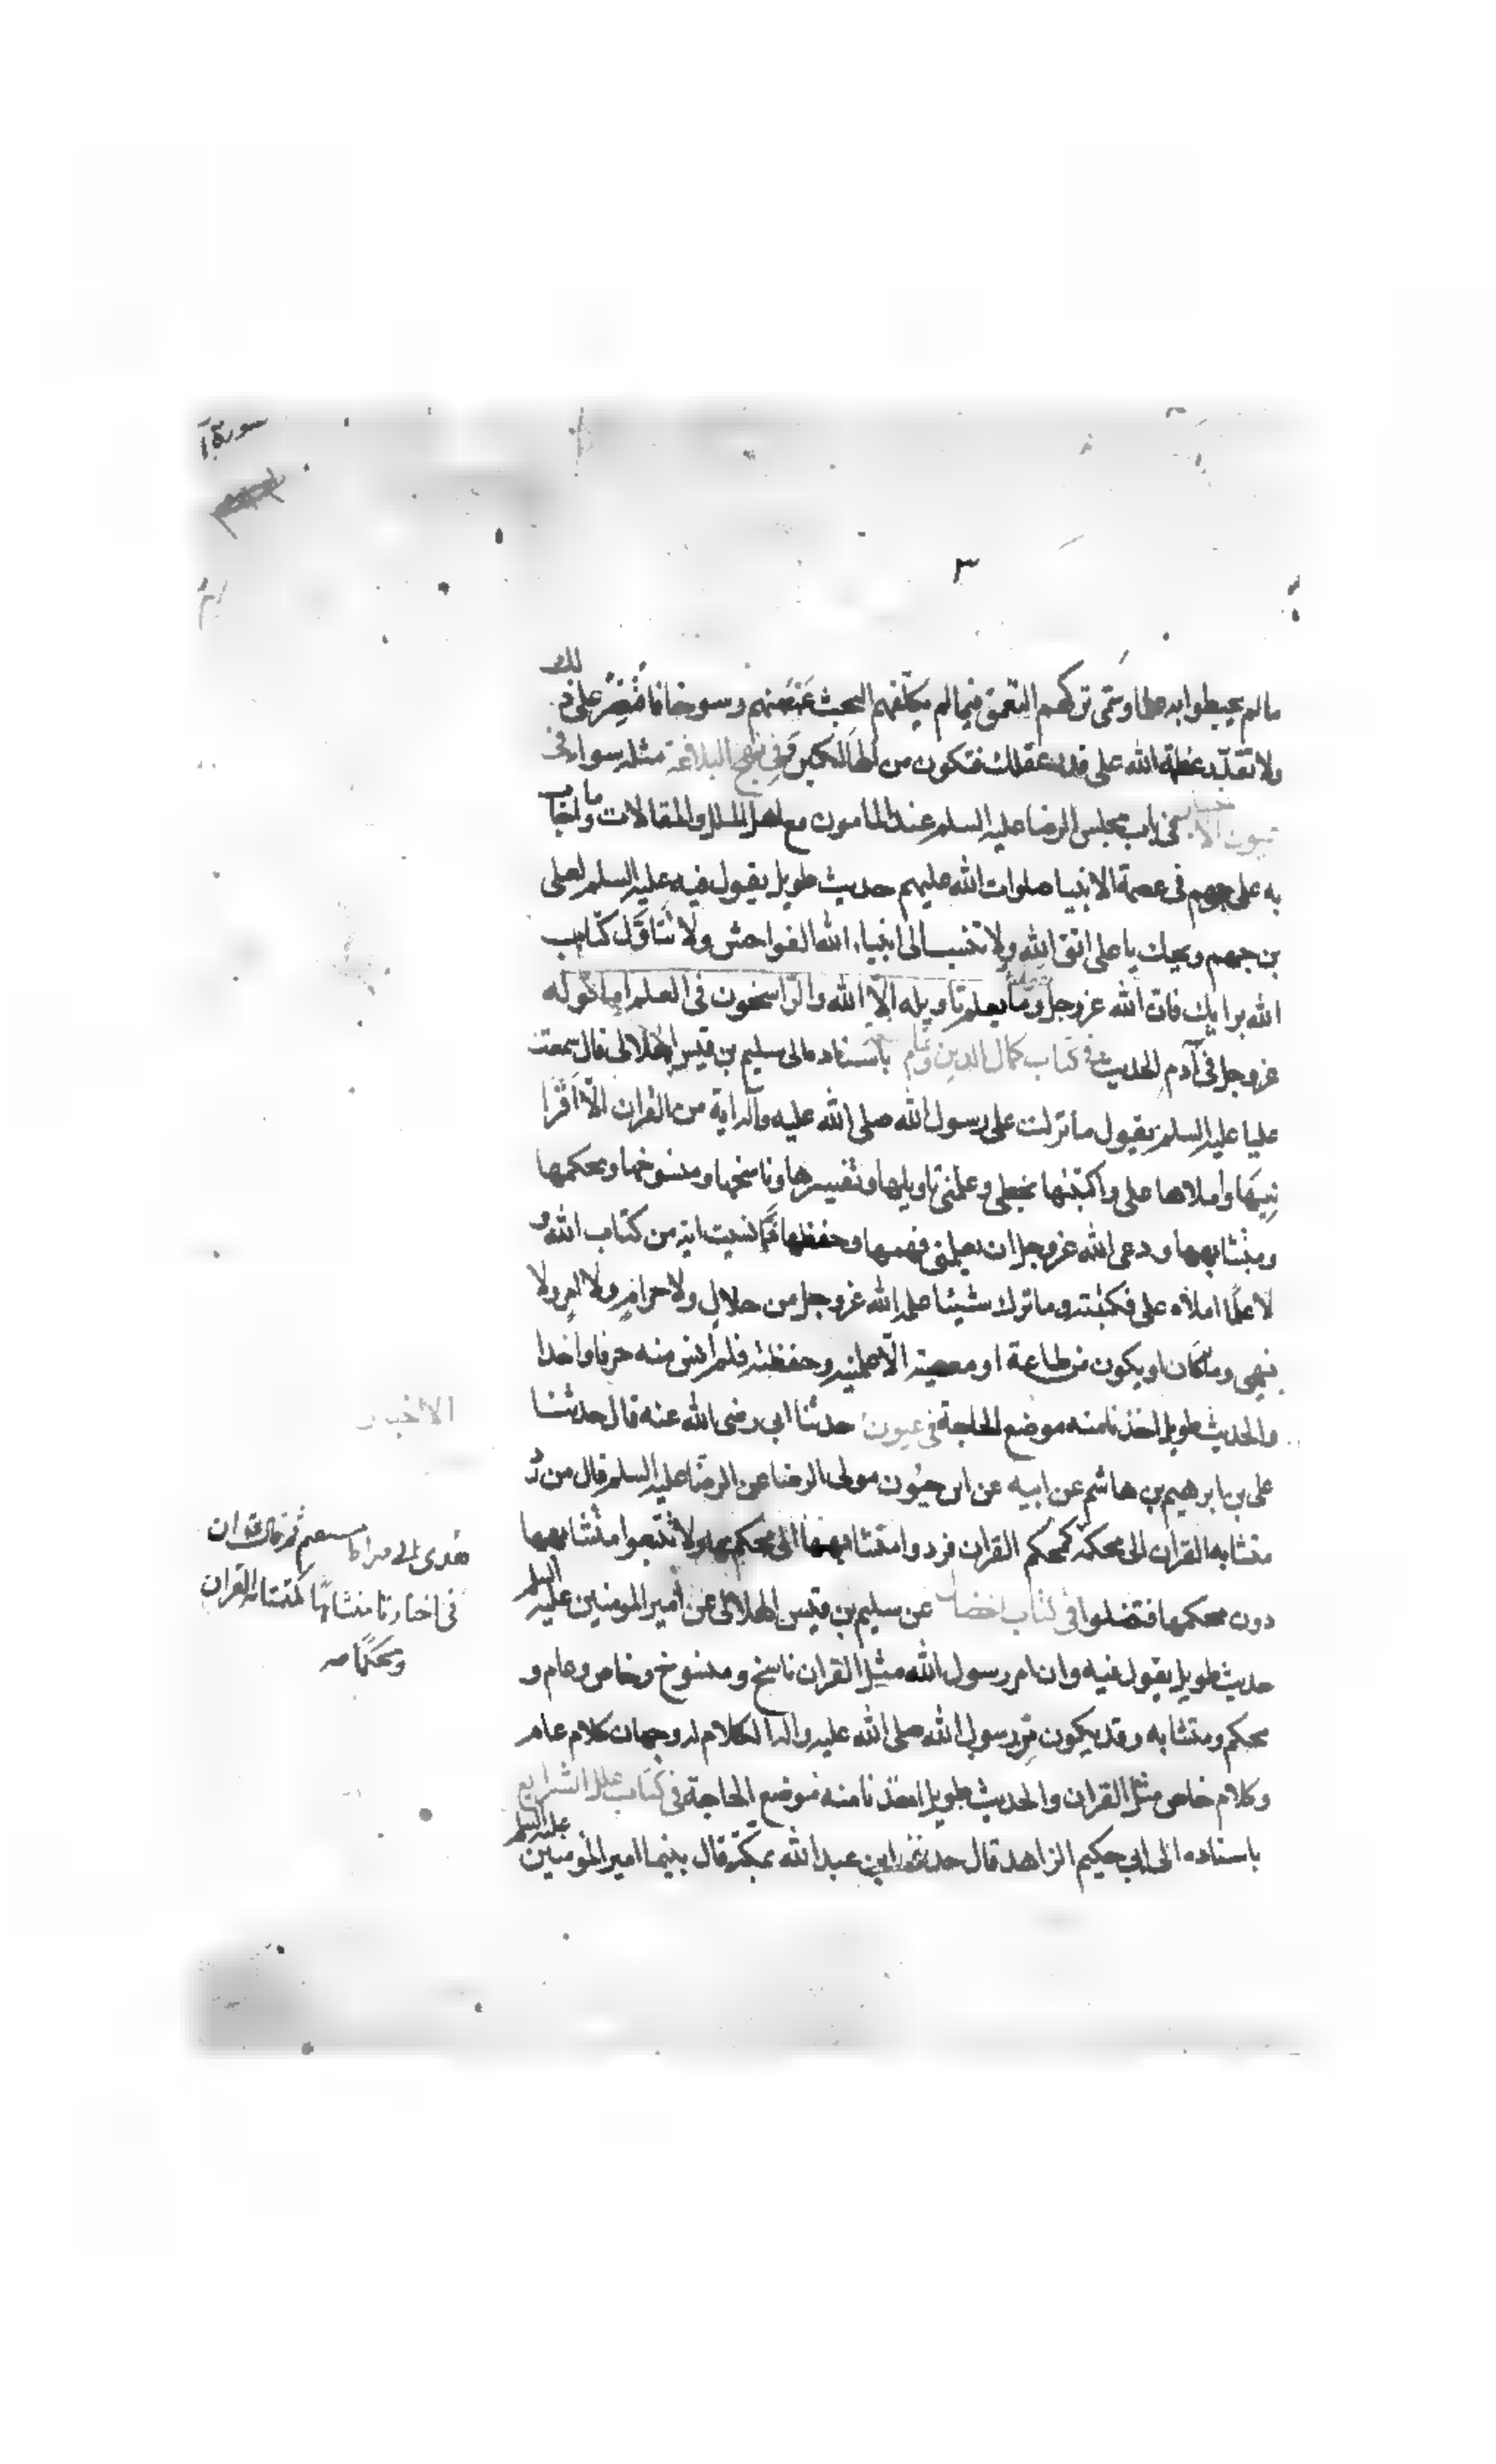 سورة آ
٣
ما لم يحيطوا به علما وسمى تركهم التعمق فيما لم يكلفهم البحث عنه منهم رسوخا فاقتصر على ذلك
ولا تقدر عظمة الله على قدر عقلك فتكون من الهالكين وفي نهج البلاغة مثله سواء في
عيون الاخبار في باب مجلس الرضا عليه السلم عند المامون مع اهل الملل والمقالات وما اجاب
به على جهم في عصمة الانبيا صلوات الله عليهم حديث طويل يقول فيه عليه السلم لعلى
بن جهم ويحك يا على اتق الله ولا تنسب الى انبياء الله الفواحش ولا تتاول كتاب
الله برايك فان الله عز وجل وما يعلم تأويله الا الله والراسخون في العلم اما قوله
عز وجل في آدم الحديث في كتاب كمال الدين وتمام باسناده الى سليم بن قيس الهلالى قال سمعت
عليا عليه السلم يقول ما نزلت على رسول الله صلى الله عليه وآله اية من القران الا اقرا
نيها واملاها على واكتبتها بخطى وعلمنى تاويلها وتفسيرها وناسخها ومنسوخها ومحكمها
ومتشابهها ودعى الله عز وجل ان يعلمنى فهمها وحفظها فما نسيت اية من كتاب الله و
لا علما املاه على فكتبته وما ترك شيئا علمه الله عز وجل من حلال ولا حرام ولا امر ولا
نهى وما كان او يكون من طاعة او معصية الا علمنيه وحفظته فلم انس منه حرفا واحدا
والحديث طويل اخذنا منه موضع الحاجة في عيون حدثنا ابى رضى الله عنه قال حدثنا
الاخبار
على بن ابرهيم بن هاشم عن ابيه عن ابن حيون مولى الرضا عن الرضا عليه السلم قال من رد
متشابه القران الى محكمه كمحكم القران فردوا متشابهها الى محكمها ولا تتبعوا متشابهها
هدى الى صراط مستقيم ثم قال ان
في اخبارنا متشابها كمتشابه القران
ومحكما صـ
دون محكمها فتضلوا في كتاب الخصال عن سليم بن قيس الهلالى عن امير المومنين عليه السلم
حديث طويل يقول فيه وان امر رسول الله مثل القران ناسخ ومنسوخ وخاص وعام و
محكم ومتشابه وقد يكون من رسول الله صلى الله عليه واله الكلام له وجهان كلام عام
وكلام خاص مثل القران والحديث طويل اخذنا منه موضع الحاجة في كتاب علل الشرايع
باسناده الى ابى حكيم الزاهد قال حدثنى ابن عبد الله بمكة قال بينما امير المومنين عليه السلم